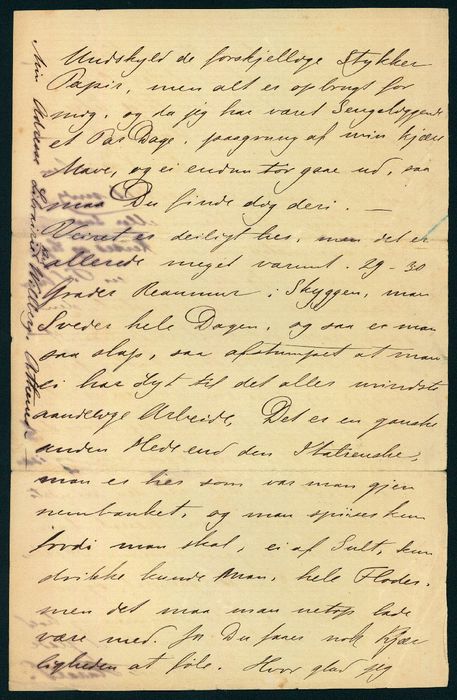 Undskyld de forskjellige Stykker
Papir, men alt er opbrugt for
mig, og da jeg har været Sengeliggende
et Par Dage, paagrund af min kjære
Mave, og ei endnu tør gaae ud, saa
maa Du finde dig deri. —
Veiret er deiligt her, men det er
allerede meget varmt. 29-30
Grader Reaumur i Skyggen, man
Sveder hele Dagen, og saa er man
saa slap, saa afstumpet at man
ei har Lyst til det alles mindste
aandelige Arbeide, Det er en ganske
anden Hede end den Italienske,
man er her som var man gjen
nembanket, og man spiser kun
fordi man skal, ei af Sult, kun
drikke kunde man, hele Floder,
men det maa man netop lade
være med. Jo, Du faaer nok Kjær
ligheden at føle. Hvor glad jeg
Min Adresse Librairie Wilberg. Athen